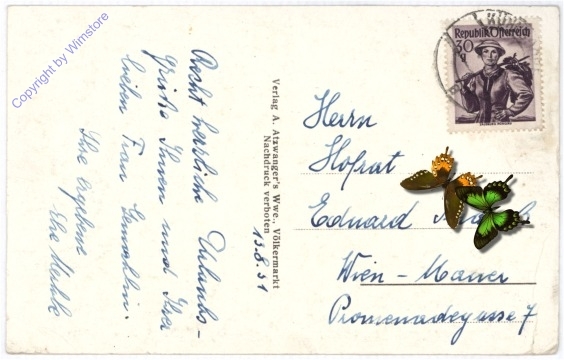 Copyright by Wimstore
Recht herzliche Urlaubs-
grüße Ihnen und Ihrer
lieben Frau Gemahlin.
Ihre ergebene
Verlag A. Atzwanger's Wwe., Völkermarkt
Nachdruck verboten
13.8.51
Republik Österreich
30
g
Herrn
Hofrat
Eduard
Wien - Mauer
Promenadegasse 7